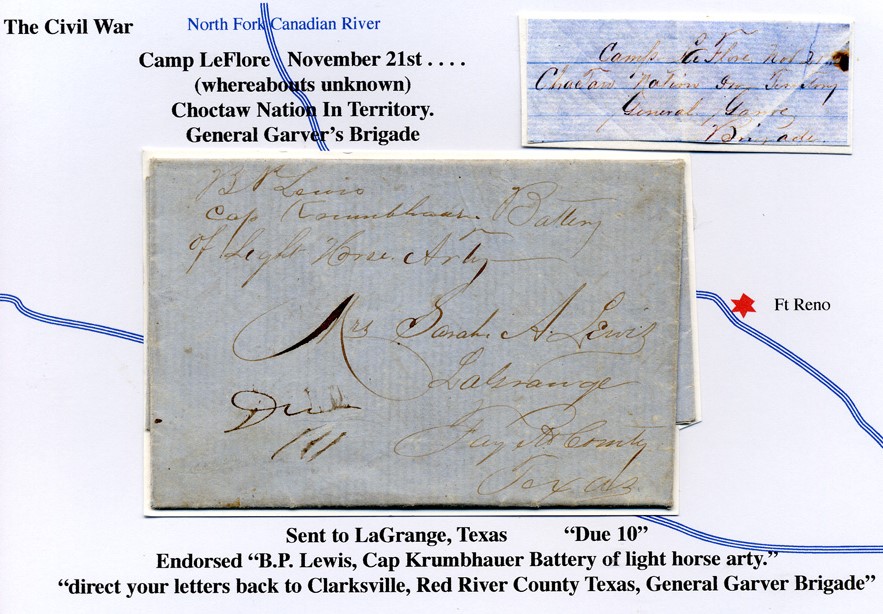 The Civil War
North Fork Canadian River
Camp LeFlore November 21st . . . .
(whereabouts unknown)
Choctaw Nation In Territory.
General Garver's Brigade
Camp Le Flore Nov 21st
Choctaw Nation Territory
General
Brigade
B P Lewis
Cap Krumbhaar Battery
of Light Horse Arty
Mrs Sarah A. Lewis
LaGrange
Due
County
Texas
Ft Reno
Sent to LaGrange, Texas "Due 10"
Endorsed “B.P. Lewis, Cap Krumbhauer Battery of light horse arty.”
“direct your letters back to Clarksville, Red River County Texas, General Garver Brigade”